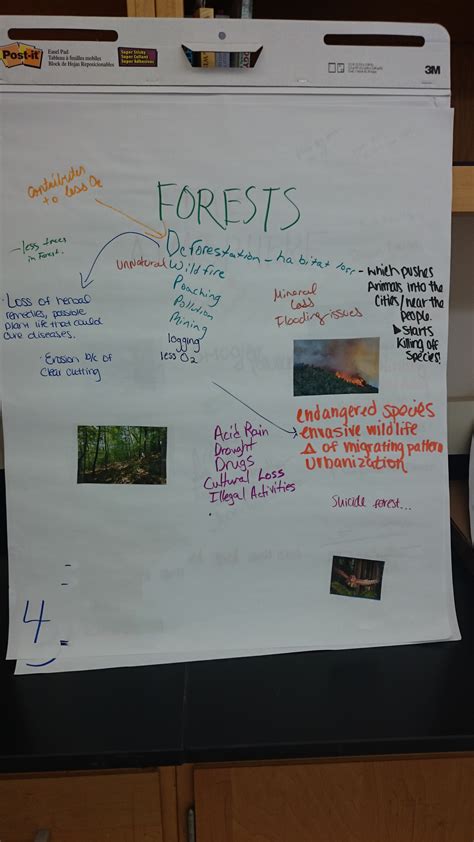 Post-it
Easel Pad
Tableau à feuilles mobiles
Block de Hojas Reposicionables
Super Sticky
3M
contributes
to less O2
FORESTS
- less trees
in Forest.
Deforestation - habitat loss - which pushes
Animals into the
Cities/near the
people.
▶ Starts
Killing off
Species!
UNnatural Wildfire
Poaching
Pollution
Mining
logging
less O2
Mineral
Loss
Flooding issues
· Loss of herbal
remedies, possible
plant life that could
cure diseases.
· Erosion b/c of
Clear cutting
endangered species
- envasive wildlife
Δ of migrating pattern
urbanization
Acid Rain
Drought
Drugs
Cultural Loss
Illegal Activities
Suicide forest...
4